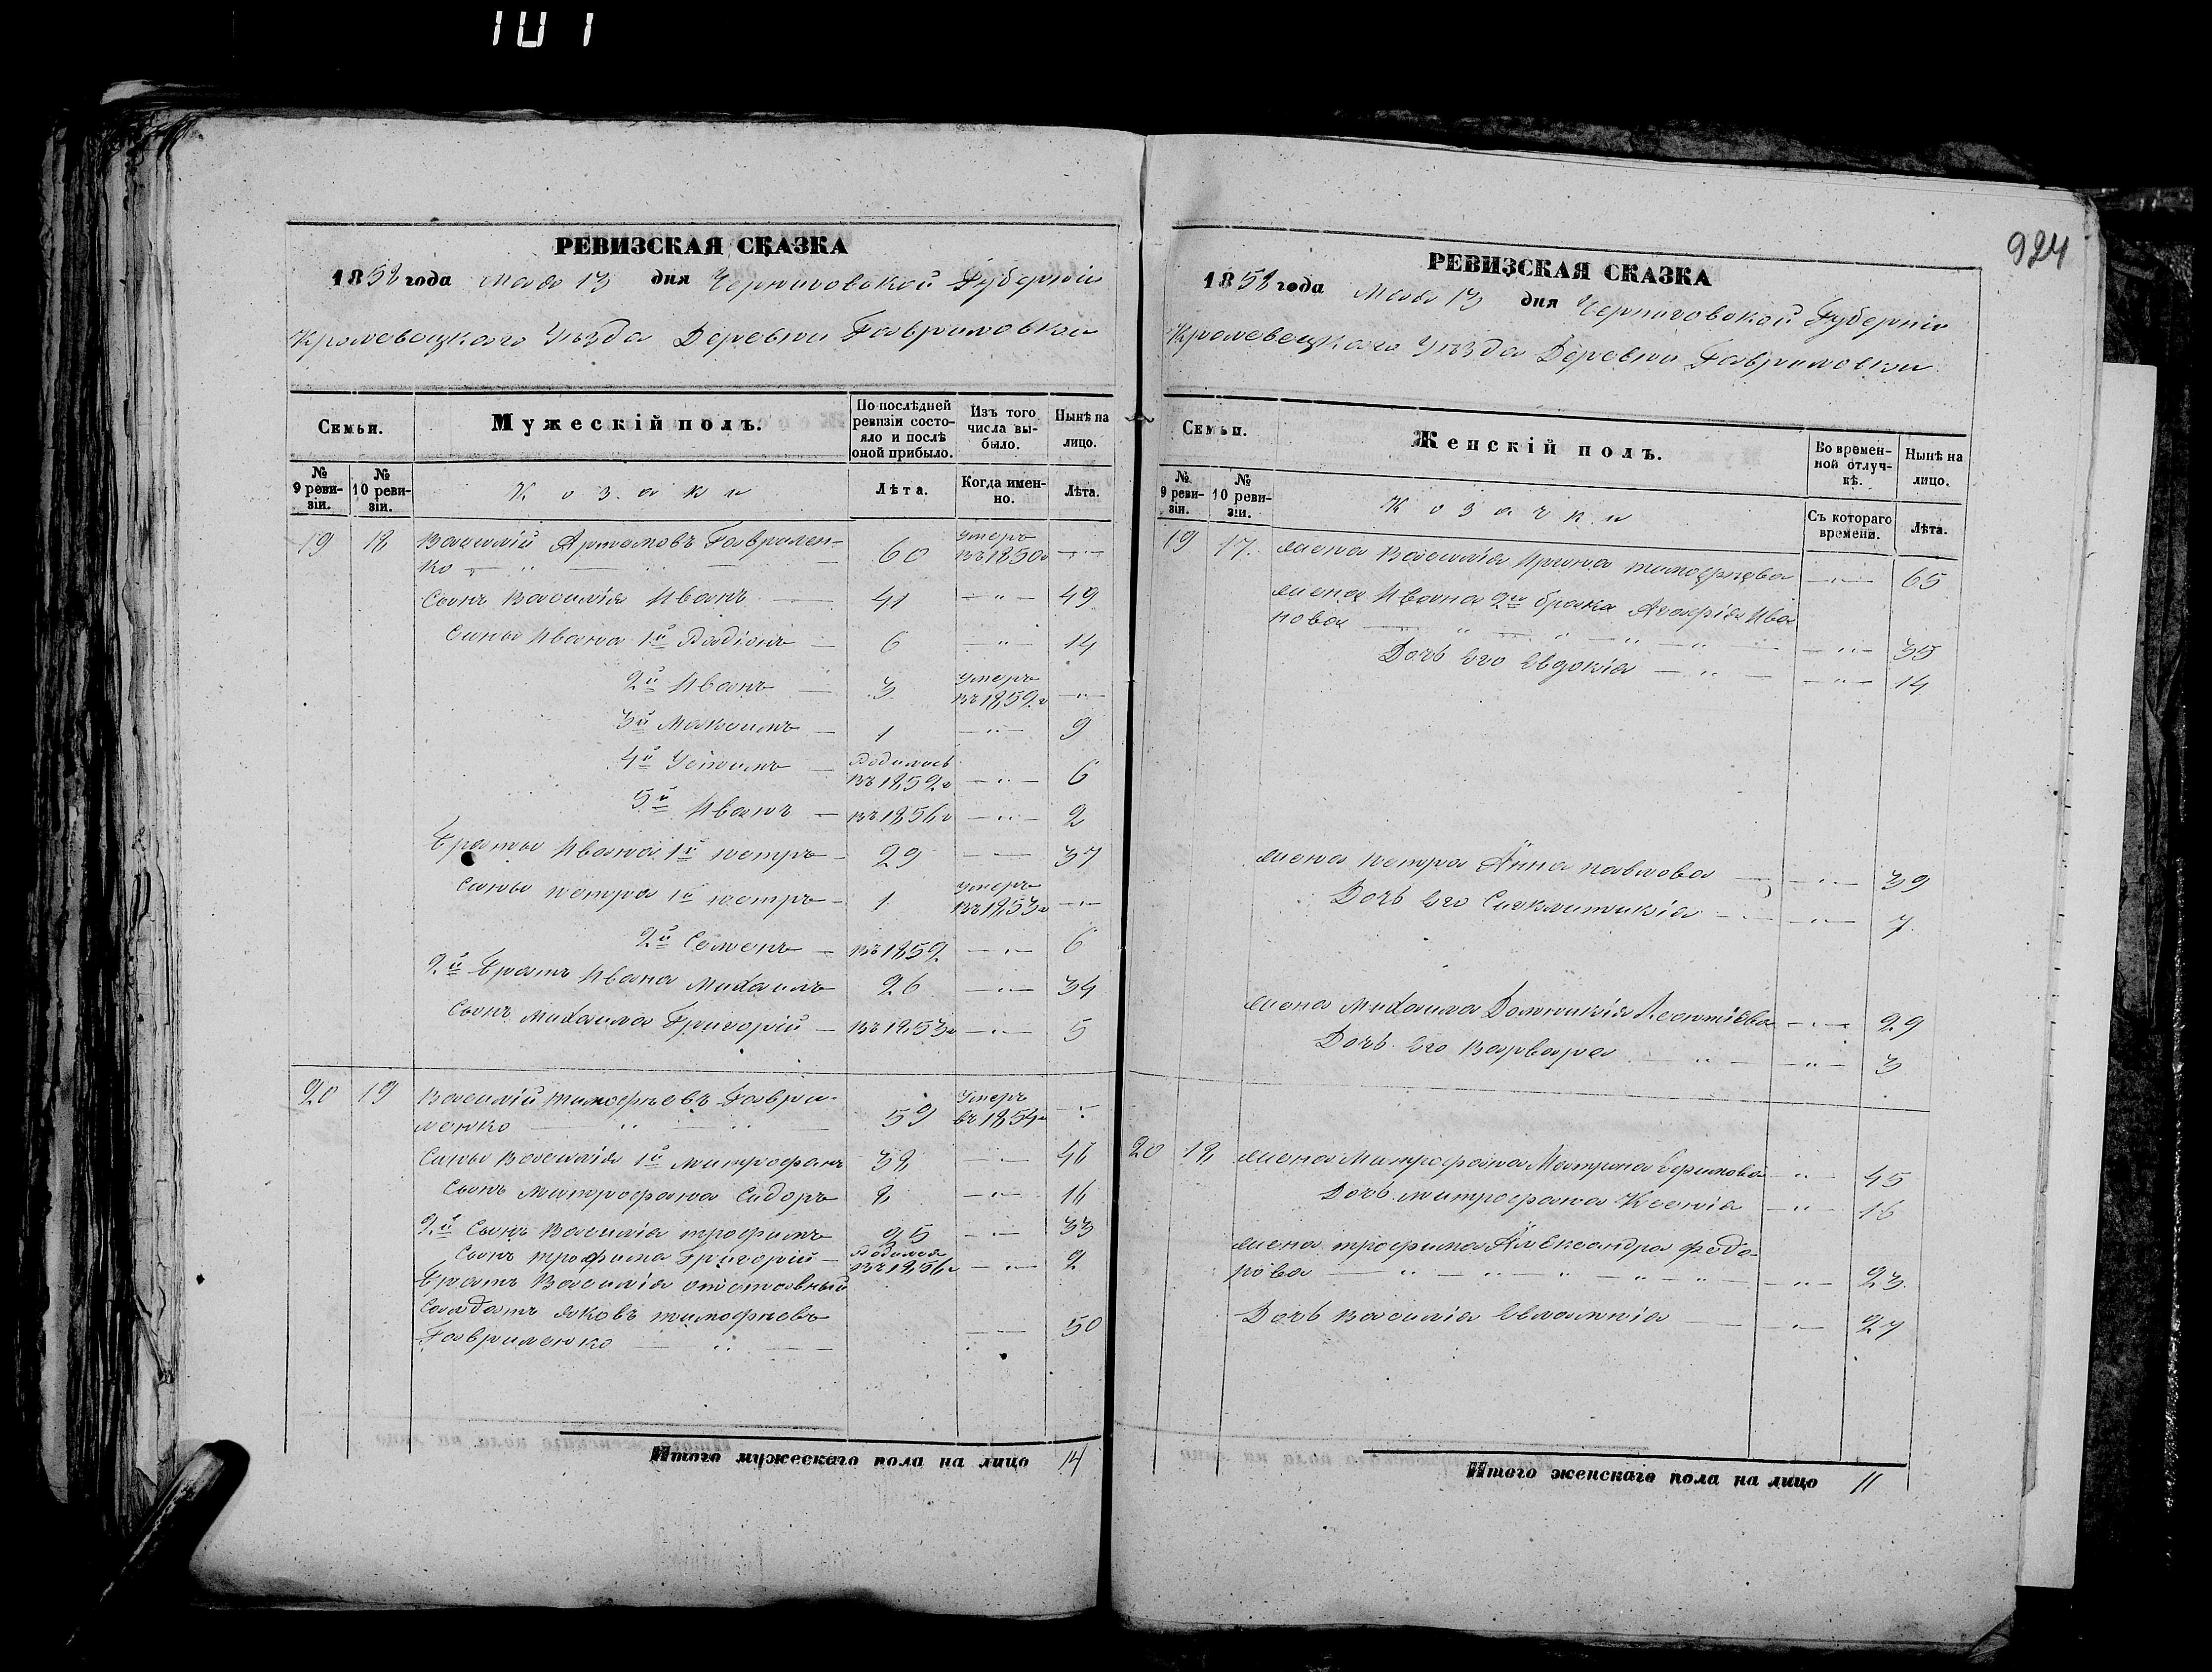 101
РЕВИЗСКАЯ СКАЗКА
1858 года Мая 13 дня Черниговской Губерніи
Кролевецкаго Уѣзда Деревни Гавриловки
Семьи.
Мужескій полъ.
По послѣдней ревизіи состояло и послѣ оной прибыло.
Изъ того числа выбыло.
Нынѣ на лицо.
№ 9 ревизіи.
№ 10 ревизіи.
Козаки
Лѣта.
Когда именно.
Лѣта.
19 18 Василій Артамовъ Гаврилен-
ко 60 умеръ въ 1850г
Сынъ Василія Иванъ 41 49
Сыны Ивана 1й Радіонъ 6 14
2й Иванъ 3 умеръ въ 1852г
3й Максимъ 1 9
4й Устимъ Родились въ 1852г 6
5й Иванъ въ 1856г 2
Браты Ивана 1й Петръ 29 37
Сыны Петра 1й Петръ 1 умеръ въ 1853г
2й Семенъ въ 1852 6
2й Братъ Ивана Михаилъ 26 34
Сынъ Михаила Григорій въ 1853г 5
20 19 Василій Тимофѣевъ Гаври-
ленко 59 умеръ въ 1854г
Сыны Василія 1й Митрофанъ 38 46
Сынъ Митрофана Сидоръ 8 16
2й Сынъ Василія Трофимъ 25 33
Сынъ Трофима Григорій Родился въ 1856г 2
Братъ Василія отставный
Солдатъ Яковъ Тимофѣевъ
Гавриленко 50
Итого мужескаго пола на лицо 14
924
РЕВИЗСКАЯ СКАЗКА
1858 года Мая 13 дня Черниговской Губерніи
Кролевецкаго Уѣзда Деревни Гавриловки
Семьи.
Женскій полъ.
Во временной отлучкѣ.
Нынѣ на лицо.
№ 9 ревизіи.
№ 10 ревизіи.
Козачки
Съ котораго времени.
Лѣта.
19 17 Жена Василія Ирина Тимофѣева 65
Жена Ивана 2го брака Агафія Ива
нова 35
Дочь его Евдокія 14
Жена Петра Анна Павлова 39
Дочь его Синклитикія 7
Жена Михаила Домникія Леонтіева 29
Дочь его Варвара 3
20 18 Жена Митрофана Матрина Ефимова 45
Дочь Митрофана Ксенія 16
Жена Трофима Александра Федо-
рова 23
Дочь Василія Евлампія 27
Итого женскаго пола на лицо 11